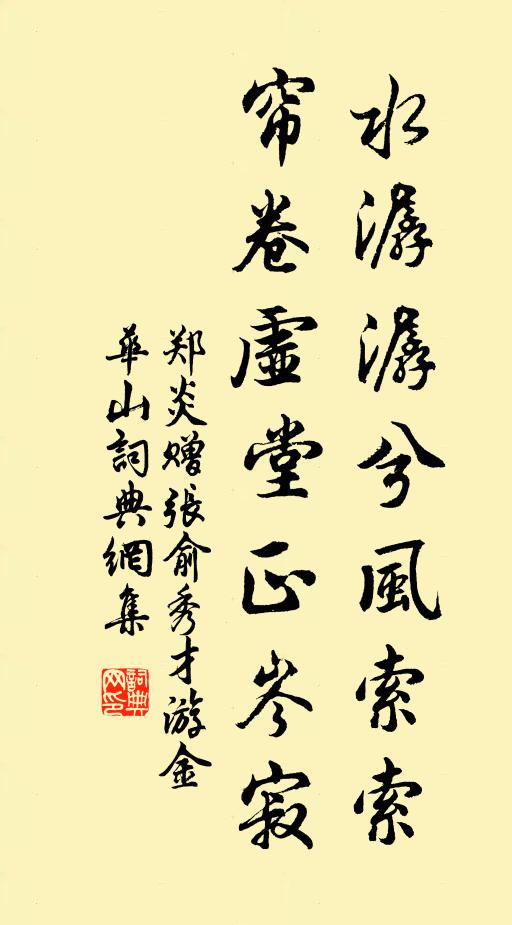 水潺潺兮風索索
帘卷虛堂正岑寂
郑炎贈張俞秀才游金
華山詞典網集
詞典网印